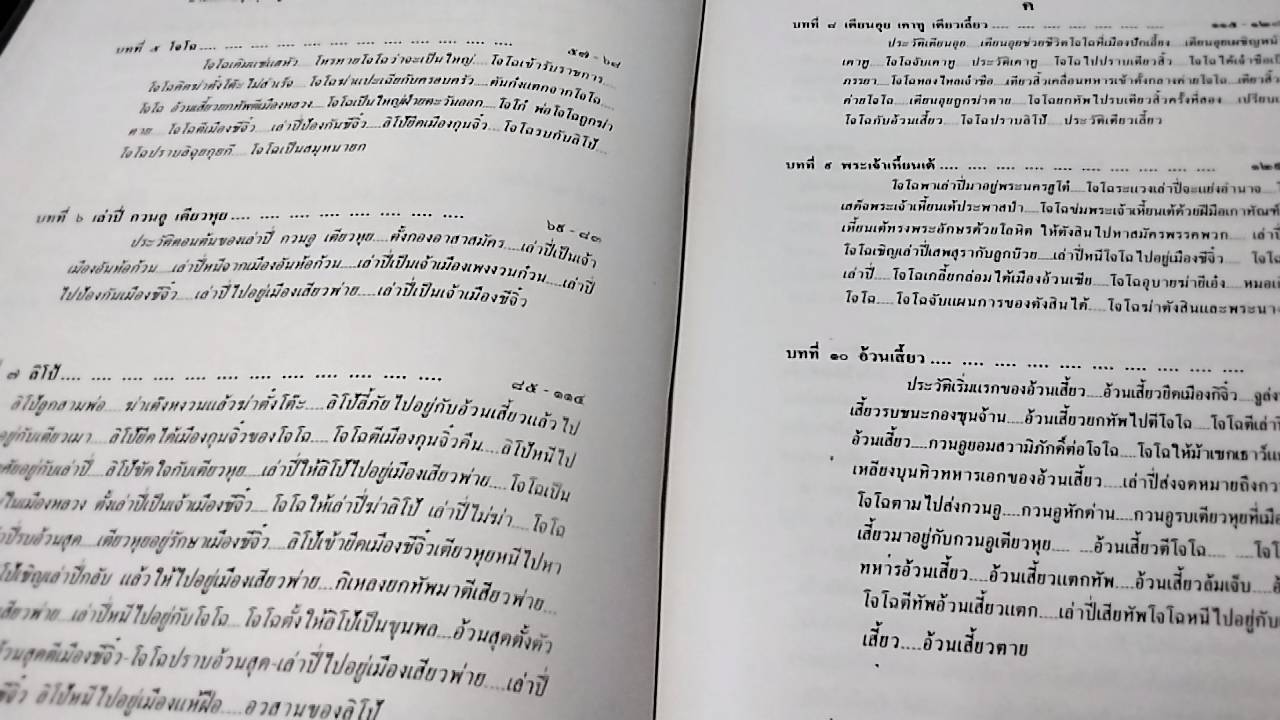 บทที่ ๕ โจโฉ .... .... .... .... .... .... .... .... .... .... ๕๗ - ๖๘
โจโฉเดิมแซ่แฮหัว .... โหรทายโจโฉว่าจะเป็นใหญ่....โจโฉเข้ารับราชการ....
โจโฉคิดฆ่าตั๋งโต๊ะไม่สำเร็จ....โจโฉฆ่าแปะเฉียกับครอบครัว....ตันก๋งแตกจากโจโฉ....
โจโฉ อ้วนเสี้ยวยกทัพตีเมืองหลวง....โจโฉเป็นใหญ่ฝ่ายตะวันออก....โจโก๋ พ่อโจโฉถูกฆ่า
ตาย....โจโฉตีเมืองชีจิ๋ว....เล่าปี่ป้องกันชีจิ๋ว....ลิโป้ยึดเมืองกุนจิ๋ว....โจโฉรบกับลิโป้....
โจโฉปราบลิฉุยกุยกี....โจโฉเป็นสมุหนายก
บทที่ ๖ เล่าปี่ กวนอู เตียวหุย.... .... .... .... .... .... .... .... ๖๙ - ๘๓
ประวัติตอนต้นของเล่าปี่ กวนอู เตียวหุย....ตั้งกองอาสาสมัคร....เล่าปี่เป็นเจ้า
เมืองอันห้อก้วน....เล่าปี่หนีจากเมืองอันห้อก้วน....เล่าปี่เป็นเจ้าเมืองเพงงวนก๋วน....เล่าปี่
ไปป้องกันเมืองชีจิ๋ว....เล่าปี่ไปอยู่เมืองเสียวพ่าย....เล่าปี่เป็นเจ้าเมืองชีจิ๋ว
๗ ลิโป้.... .... .... .... .... .... .... .... .... .... .... .... ๘๕ - ๑๑๔
ลิโป้ลูกสามพ่อ....ฆ่าเต๊งหงวนแล้วฆ่าตั๋งโต๊ะ....ลิโป้ลี้ภัยไปอยู่กับอ้วนเสี้ยวแล้วไป
อยู่กับเตียวเมา....ลิโป้ยึดได้เมืองกุนจิ๋วของโจโฉ....โจโฉตีเมืองกุนจิ๋วคืน....ลิโป้หนีไป
อยู่กับเล่าปี่....ลิโป้ขัดใจกับเตียวหุย....เล่าปี่ให้ลิโป้ไปอยู่เมืองเสียวพ่าย....โจโฉเป็น
ในเมืองหลวง ตั้งเล่าปี่เป็นเจ้าเมืองชีจิ๋ว....โจโฉให้เล่าปี่ฆ่าลิโป้ เล่าปี่ไม่ฆ่า....โจโฉ
รบอ้วนสุด....เตียวหุยอยู่รักษาเมืองชีจิ๋ว....ลิโป้เข้ายึดเมืองชีจิ๋วเตียวหุยหนีไปหา
เชิญเล่าปี่กลับ แล้วให้ไปอยู่เมืองเสียวพ่าย....กิเหลงยกทัพมาตีเสียวพ่าย....
เสียวพ่าย....เล่าปี่หนีไปอยู่กับโจโฉ....โจโฉตั้งให้ลิโป้เป็นขุนพล....อ้วนสุดตั้งตัว
อ้วนสุดตีเมืองชีจิ๋ว-โจโฉปราบอ้วนสุด-เล่าปี่ไปอยู่เมืองเสียวพ่าย....เล่าปี่
ชีจิ๋ว ลิโป้หนีไปอยู่เมืองแห้ฝือ....อวสานของลิโป้
ค
บทที่ ๘ เตียนอุย เคาทู เตียวเลี้ยว.... .... .... .... .... .... .... ๑๑๕ -
ประวัติเตียนอุย....เตียนอุยช่วยชีวิตโจโฉที่เมืองปักเอี้ยง....เตียนอุยเผชิญหน้า
เคาทู....โจโฉจับเคาทู....ประวัติเคาทู....โจโฉไปปราบเตียวสิ้ว....โจโฉได้เจ้าซือเป็น
ภรรยา....โจโฉหลงใหลเจ้าซือ....เตียวสิ้วเคลื่อนทหารเข้าตั้งกลางค่ายโจโฉ....เตียวสิ้ว
ค่ายโจโฉ....เตียนอุยถูกฆ่าตาย....โจโฉยกทัพไปรบเตียวสิ้วครั้งที่สอง....เปรียบ
โจโฉกับอ้วนเสี้ยว....โจโฉปราบลิโป้....ประวัติเตียวเลี้ยว
บทที่ ๙ พระเจ้าเหี้ยนเต้.... .... .... .... .... .... .... .... .... ....
โจโฉพาเล่าปี่มาอยู่พระนครฮูโต๋....โจโฉระแวงเล่าปี่จะแย่งอำนาจ....
เสด็จพระเจ้าเหี้ยนเต้ประพาสป่า....โจโฉข่มพระเจ้าเหี้ยนเต้ด้วยฝีมือเกาทัณฑ์
เหี้ยนเต้ทรงพระอักษรด้วยโลหิต ให้ตังสินไปหาสมัครพรรคพวก....
โจโฉเชิญเล่าปี่เสพสุรากับลูกบ๊วย....เล่าปี่หนีโจโฉไปอยู่เมืองชีจิ๋ว....
เล่าปี่....โจโฉเกลี้ยกล่อมได้เมืองอ้วนเซีย....โจโฉอุบายฆ่ายีเอ๋ง....
โจโฉ....โจโฉจับแผนการของตังสินได้....โจโฉฆ่าตังสินและพระนาง
บทที่ ๑๐ อ้วนเสี้ยว.... .... .... .... .... .... .... .... .... .... ....
ประวัติเริ่มแรกของอ้วนเสี้ยว....อ้วนเสี้ยวยึดเมืองกิจิ๋ว....
เสี้ยวรบชนะกองซุนจ้าน....อ้วนเสี้ยวยกทัพไปตีโจโฉ....
อ้วนเสี้ยว....กวนอูยอมสวามิภักดิ์ต่อโจโฉ....โจโฉให้ม้าเซกเธาว์
เหลียงบุนทิวทหารเอกของอ้วนเสี้ยว....เล่าปี่ส่งจดหมายถึง
โจโฉตามไปส่งกวนอู....กวนอูหักด่าน....กวนอูรบเตียวหุยที่
เสี้ยวมาอยู่กับกวนอูเตียวหุย.... ....อ้วนเสี้ยวตีโจโฉ....
ทหาร่อ้วนเสี้ยว....อ้วนเสี้ยวแตกทัพ....อ้วนเสี้ยวล้มเจ็บ....
โจโฉตีทัพอ้วนเสี้ยวแตก....เล่าปี่เสียทัพโจโฉหนีไปอยู่กับ
เสี้ยว....อ้วนเสี้ยวตาย